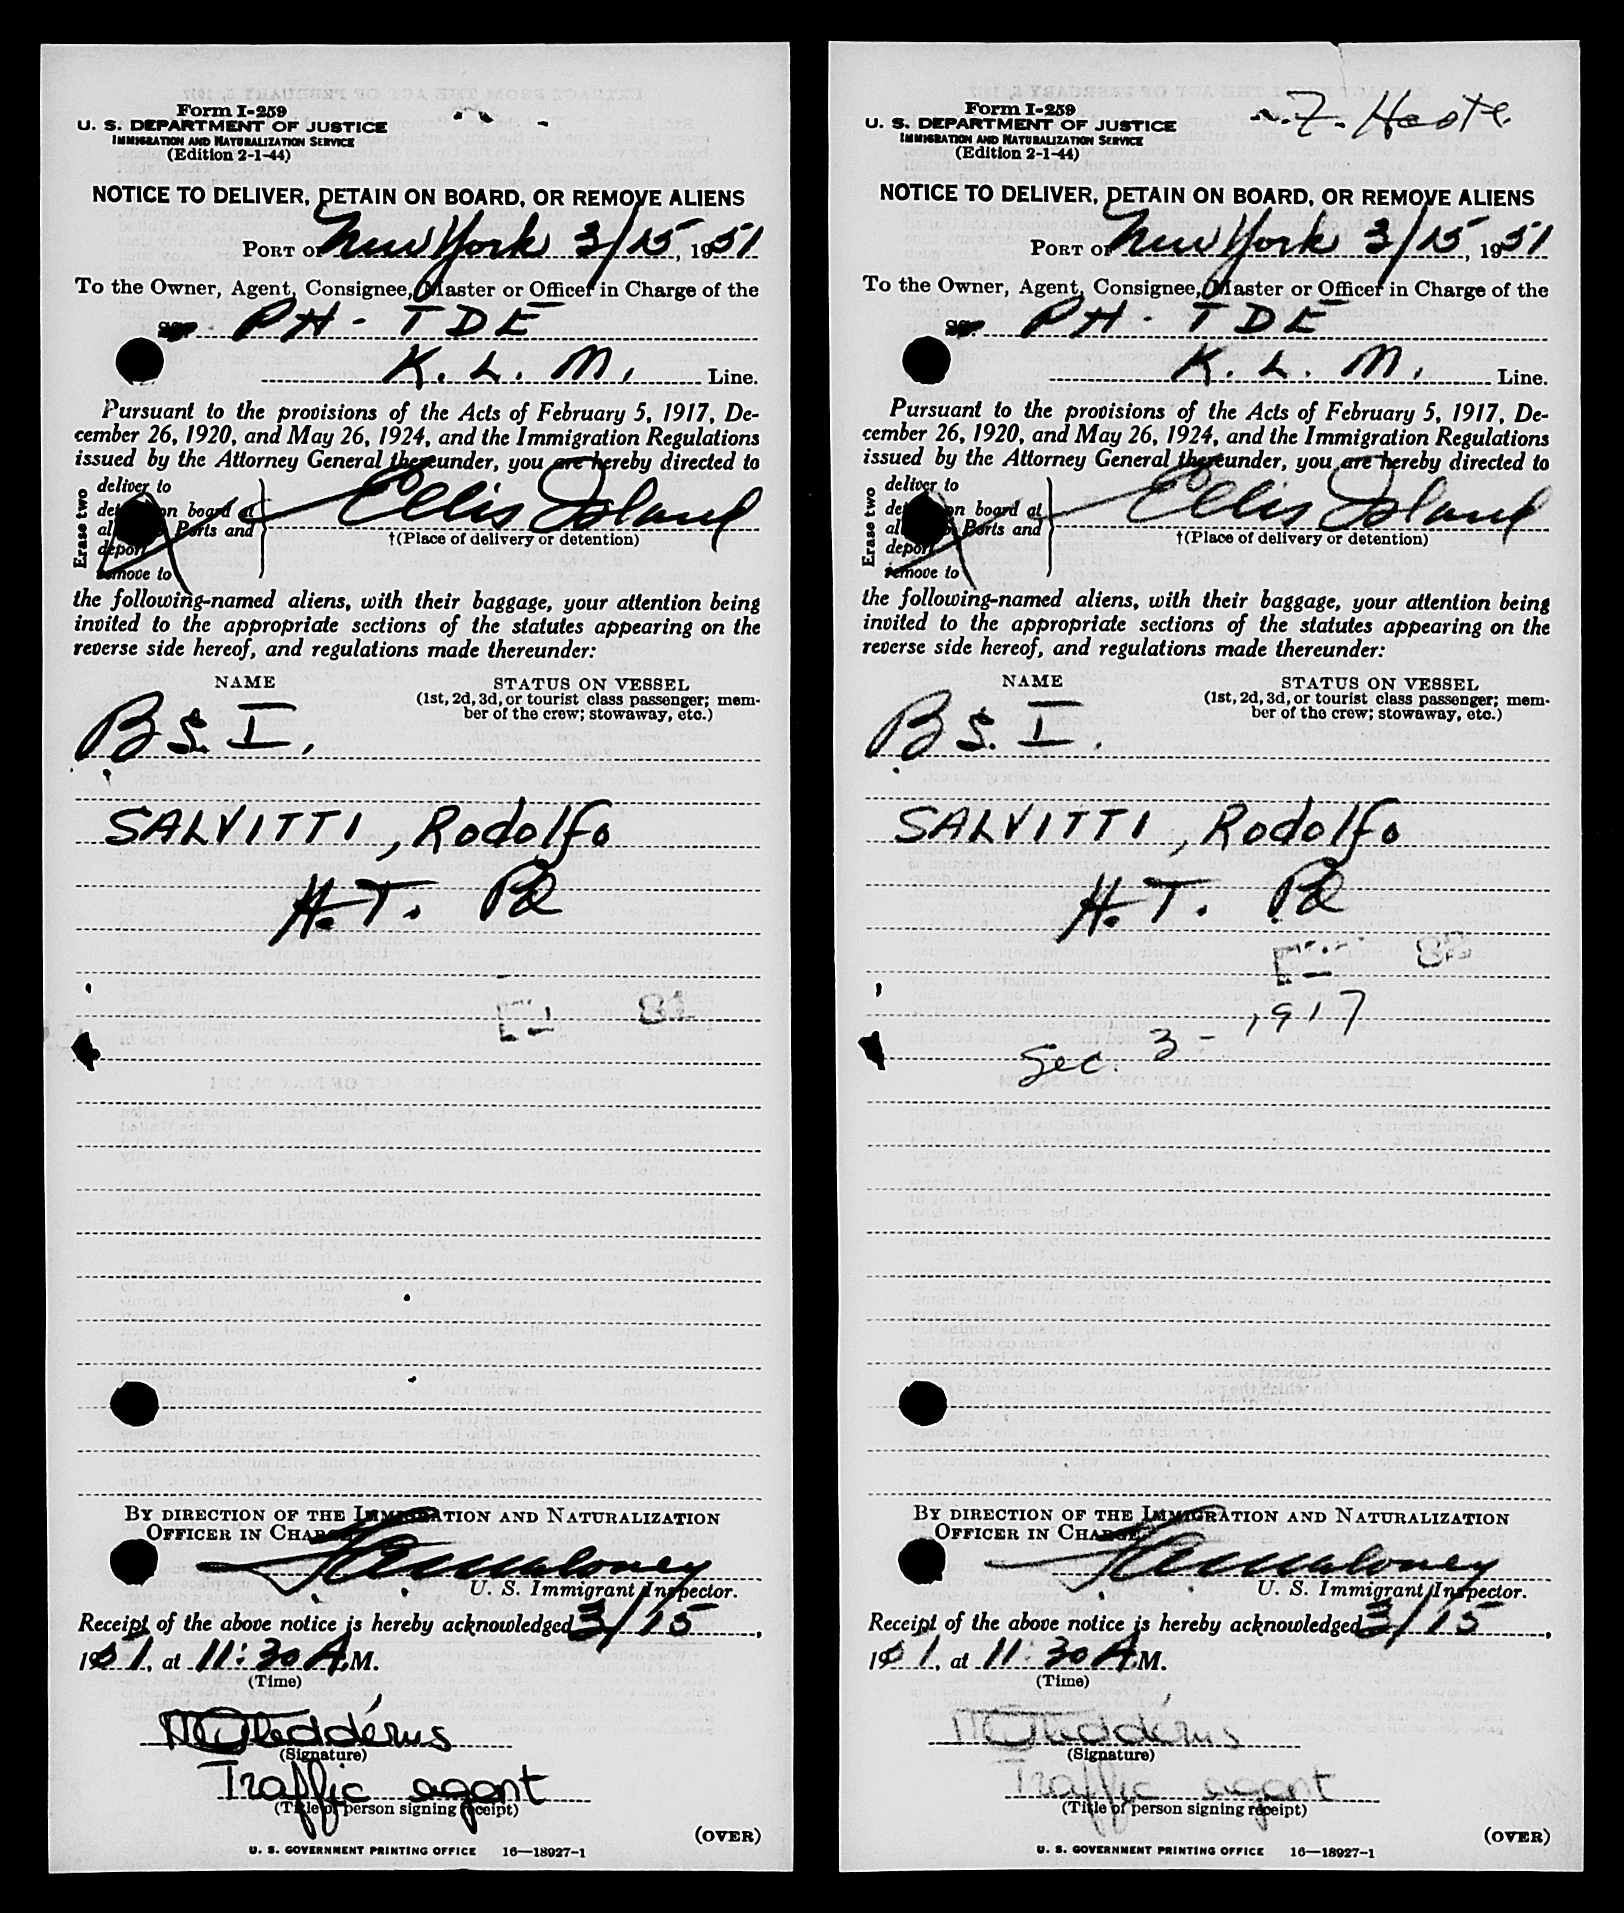 Form I-259
U. S. DEPARTMENT OF JUSTICE
IMMIGRATION AND NATURALIZATION SERVICE
(Edition 2-1-44)
NOTICE TO DELIVER, DETAIN ON BOARD, OR REMOVE ALIENS
PORT OF New York 3/15, 1951
To the Owner, Agent, Consignee, Master or Officer in Charge of the
PH - TDE
K. L. M. Line.
Pursuant to the provisions of the Acts of February 5, 1917, De-
cember 26, 1920, and May 26, 1924, and the Immigration Regulations
issued by the Attorney General thereunder, you are hereby directed to
Erase two
deliver to
on board at
Ports and
remove to
Ellis Island
†(Place of delivery or detention)
the following-named aliens, with their baggage, your attention being
invited to the appropriate sections of the statutes appearing on the
reverse side hereof, and regulations made thereunder:
NAME
STATUS ON VESSEL
(1st, 2d, 3d, or tourist class passenger; mem-
ber of the crew; stowaway, etc.)
B S. I.
SALVITTI, Rodolfo
H. T.
81
BY DIRECTION OF THE IMMIGRATION AND NATURALIZATION
OFFICER IN CHARGE.
U. S. Immigrant Inspector.
Receipt of the above notice is hereby acknowledged 3/15,
1951, at 11:30 A.M.
(Time)
(Signature)
Traffic agent
(Title of person signing receipt)
(OVER)
U. S. GOVERNMENT PRINTING OFFICE 16—18927-1
Form I-259
U. S. DEPARTMENT OF JUSTICE
IMMIGRATION AND NATURALIZATION SERVICE
(Edition 2-1-44)
NOTICE TO DELIVER, DETAIN ON BOARD, OR REMOVE ALIENS
PORT OF New York 3/15, 1951
To the Owner, Agent, Consignee, Master or Officer in Charge of the
PH - TDE
K. L. M. Line.
Pursuant to the provisions of the Acts of February 5, 1917, De-
cember 26, 1920, and May 26, 1924, and the Immigration Regulations
issued by the Attorney General thereunder, you are hereby directed to
Erase two
deliver to
on board at
Ports and
remove to
Ellis Island
†(Place of delivery or detention)
the following-named aliens, with their baggage, your attention being
invited to the appropriate sections of the statutes appearing on the
reverse side hereof, and regulations made thereunder:
NAME
STATUS ON VESSEL
(1st, 2d, 3d, or tourist class passenger; mem-
ber of the crew; stowaway, etc.)
B S. I.
SALVITTI, Rodolfo
H. T.
Sec. 3 - 1917
BY DIRECTION OF THE IMMIGRATION AND NATURALIZATION
OFFICER IN CHARGE.
U. S. Immigrant Inspector.
Receipt of the above notice is hereby acknowledged 3/15,
1951, at 11:30 A.M.
(Time)
(Signature)
Traffic agent
(Title of person signing receipt)
(OVER)
U. S. GOVERNMENT PRINTING OFFICE 16—18927-1